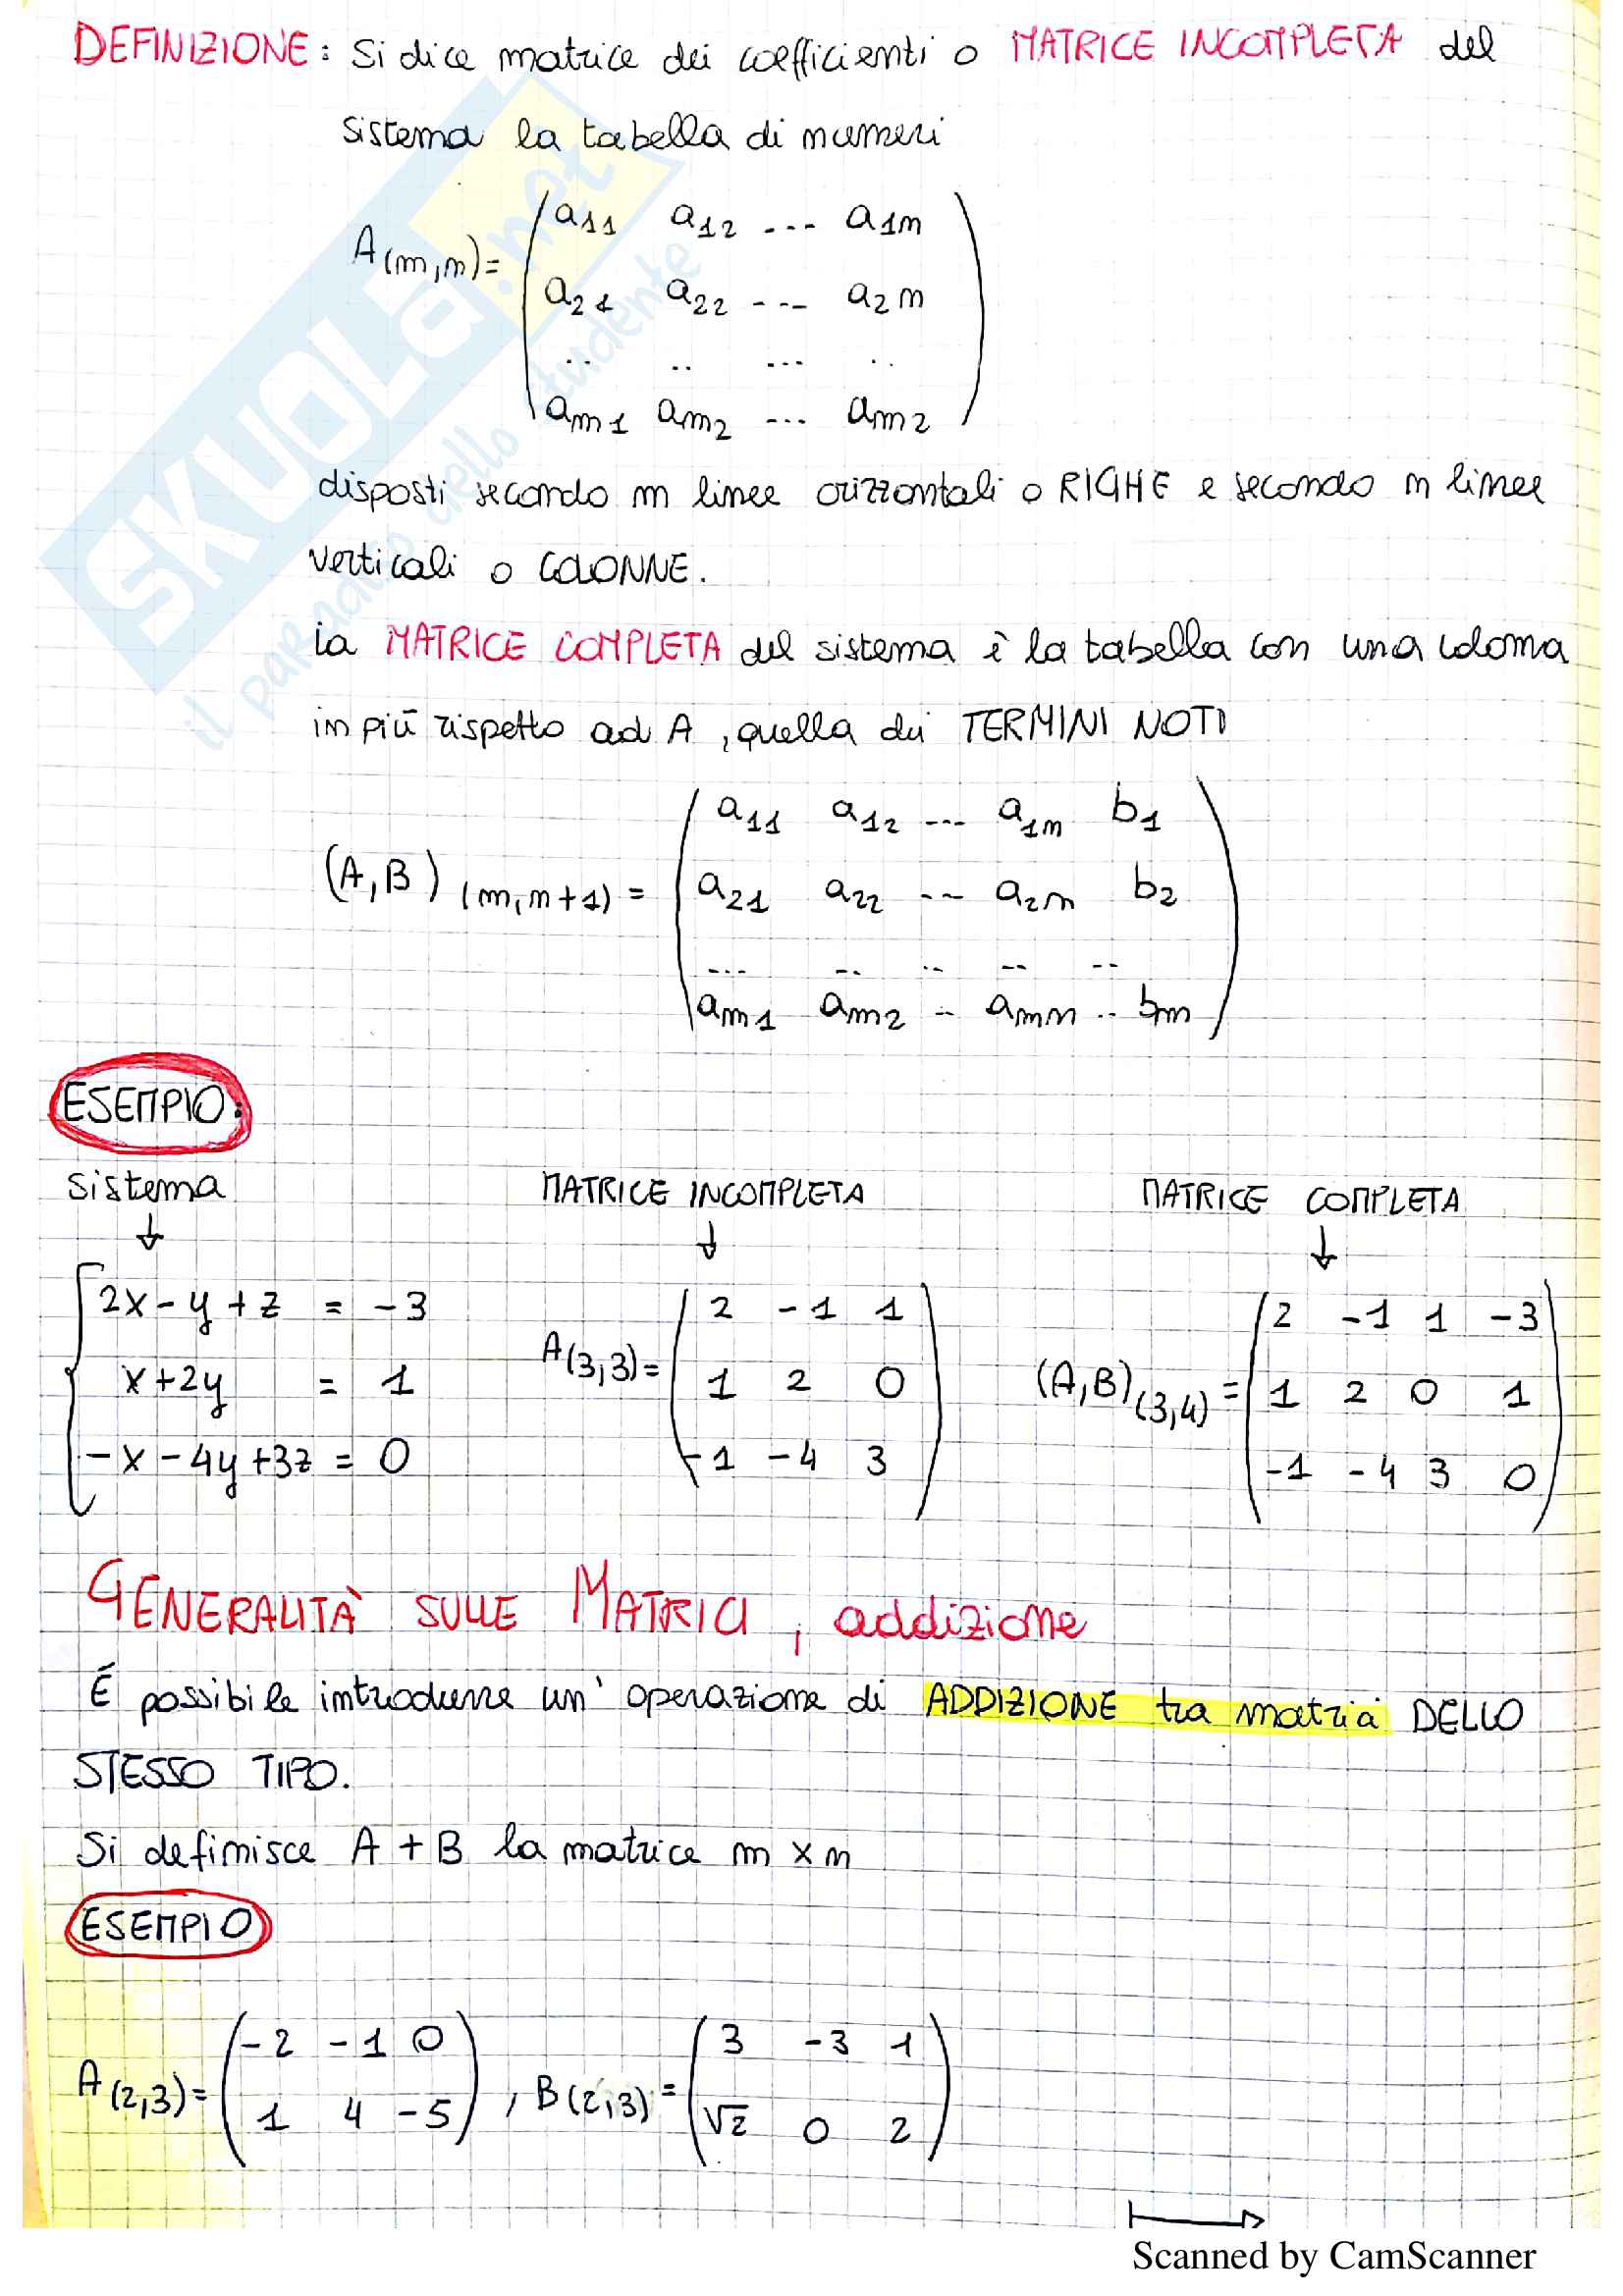 DEFINIZIONE: Si dice matrice dei coefficienti o MATRICE INCOMPLETA del
sistema la tabella di numeri
A(m,n)= ( a11 a12 --- a1n
a21 a22 --- a2n
.. .. ... ..
am1 am2 ... am2 )
disposti secondo m linee orizzontali o RIGHE e secondo n linee
verticali o COLONNE.
La MATRICE COMPLETA del sistema è la tabella con una colonna
in più rispetto ad A, quella dei TERMINI NOTI
(A,B)(m,n+1) = ( a11 a12 --- a1n b1
a21 a22 --- a2n b2
... -. .. -- --
am1 am2 .. amn .. bm )
ESEMPIO:
sistema MATRICE INCOMPLETA MATRICE COMPLETA
↓ ↓ ↓
2x - y + z = -3 ( 2 -1 1 ( 2 -1 1 -3
x + 2y = 1 A(3,3)= 1 2 0 (A,B)(3,4) = 1 2 0 1
-x - 4y + 3z = 0 -1 -4 3 ) -1 -4 3 0 )
GENERALITÀ SULLE MATRICI, addizione
É possibile introdurre un' operazione di ADDIZIONE tra matrici DELLO
STESSO TIPO.
Si definisce A + B la matrice m x n
ESEMPIO
A(2,3)= ( -2 -1 0 , B(2,3)= ( 3 -3 1
1 4 -5 ) √2 0 2 )
SKUOLA.net
il paradiso dello studente
Scanned by CamScanner